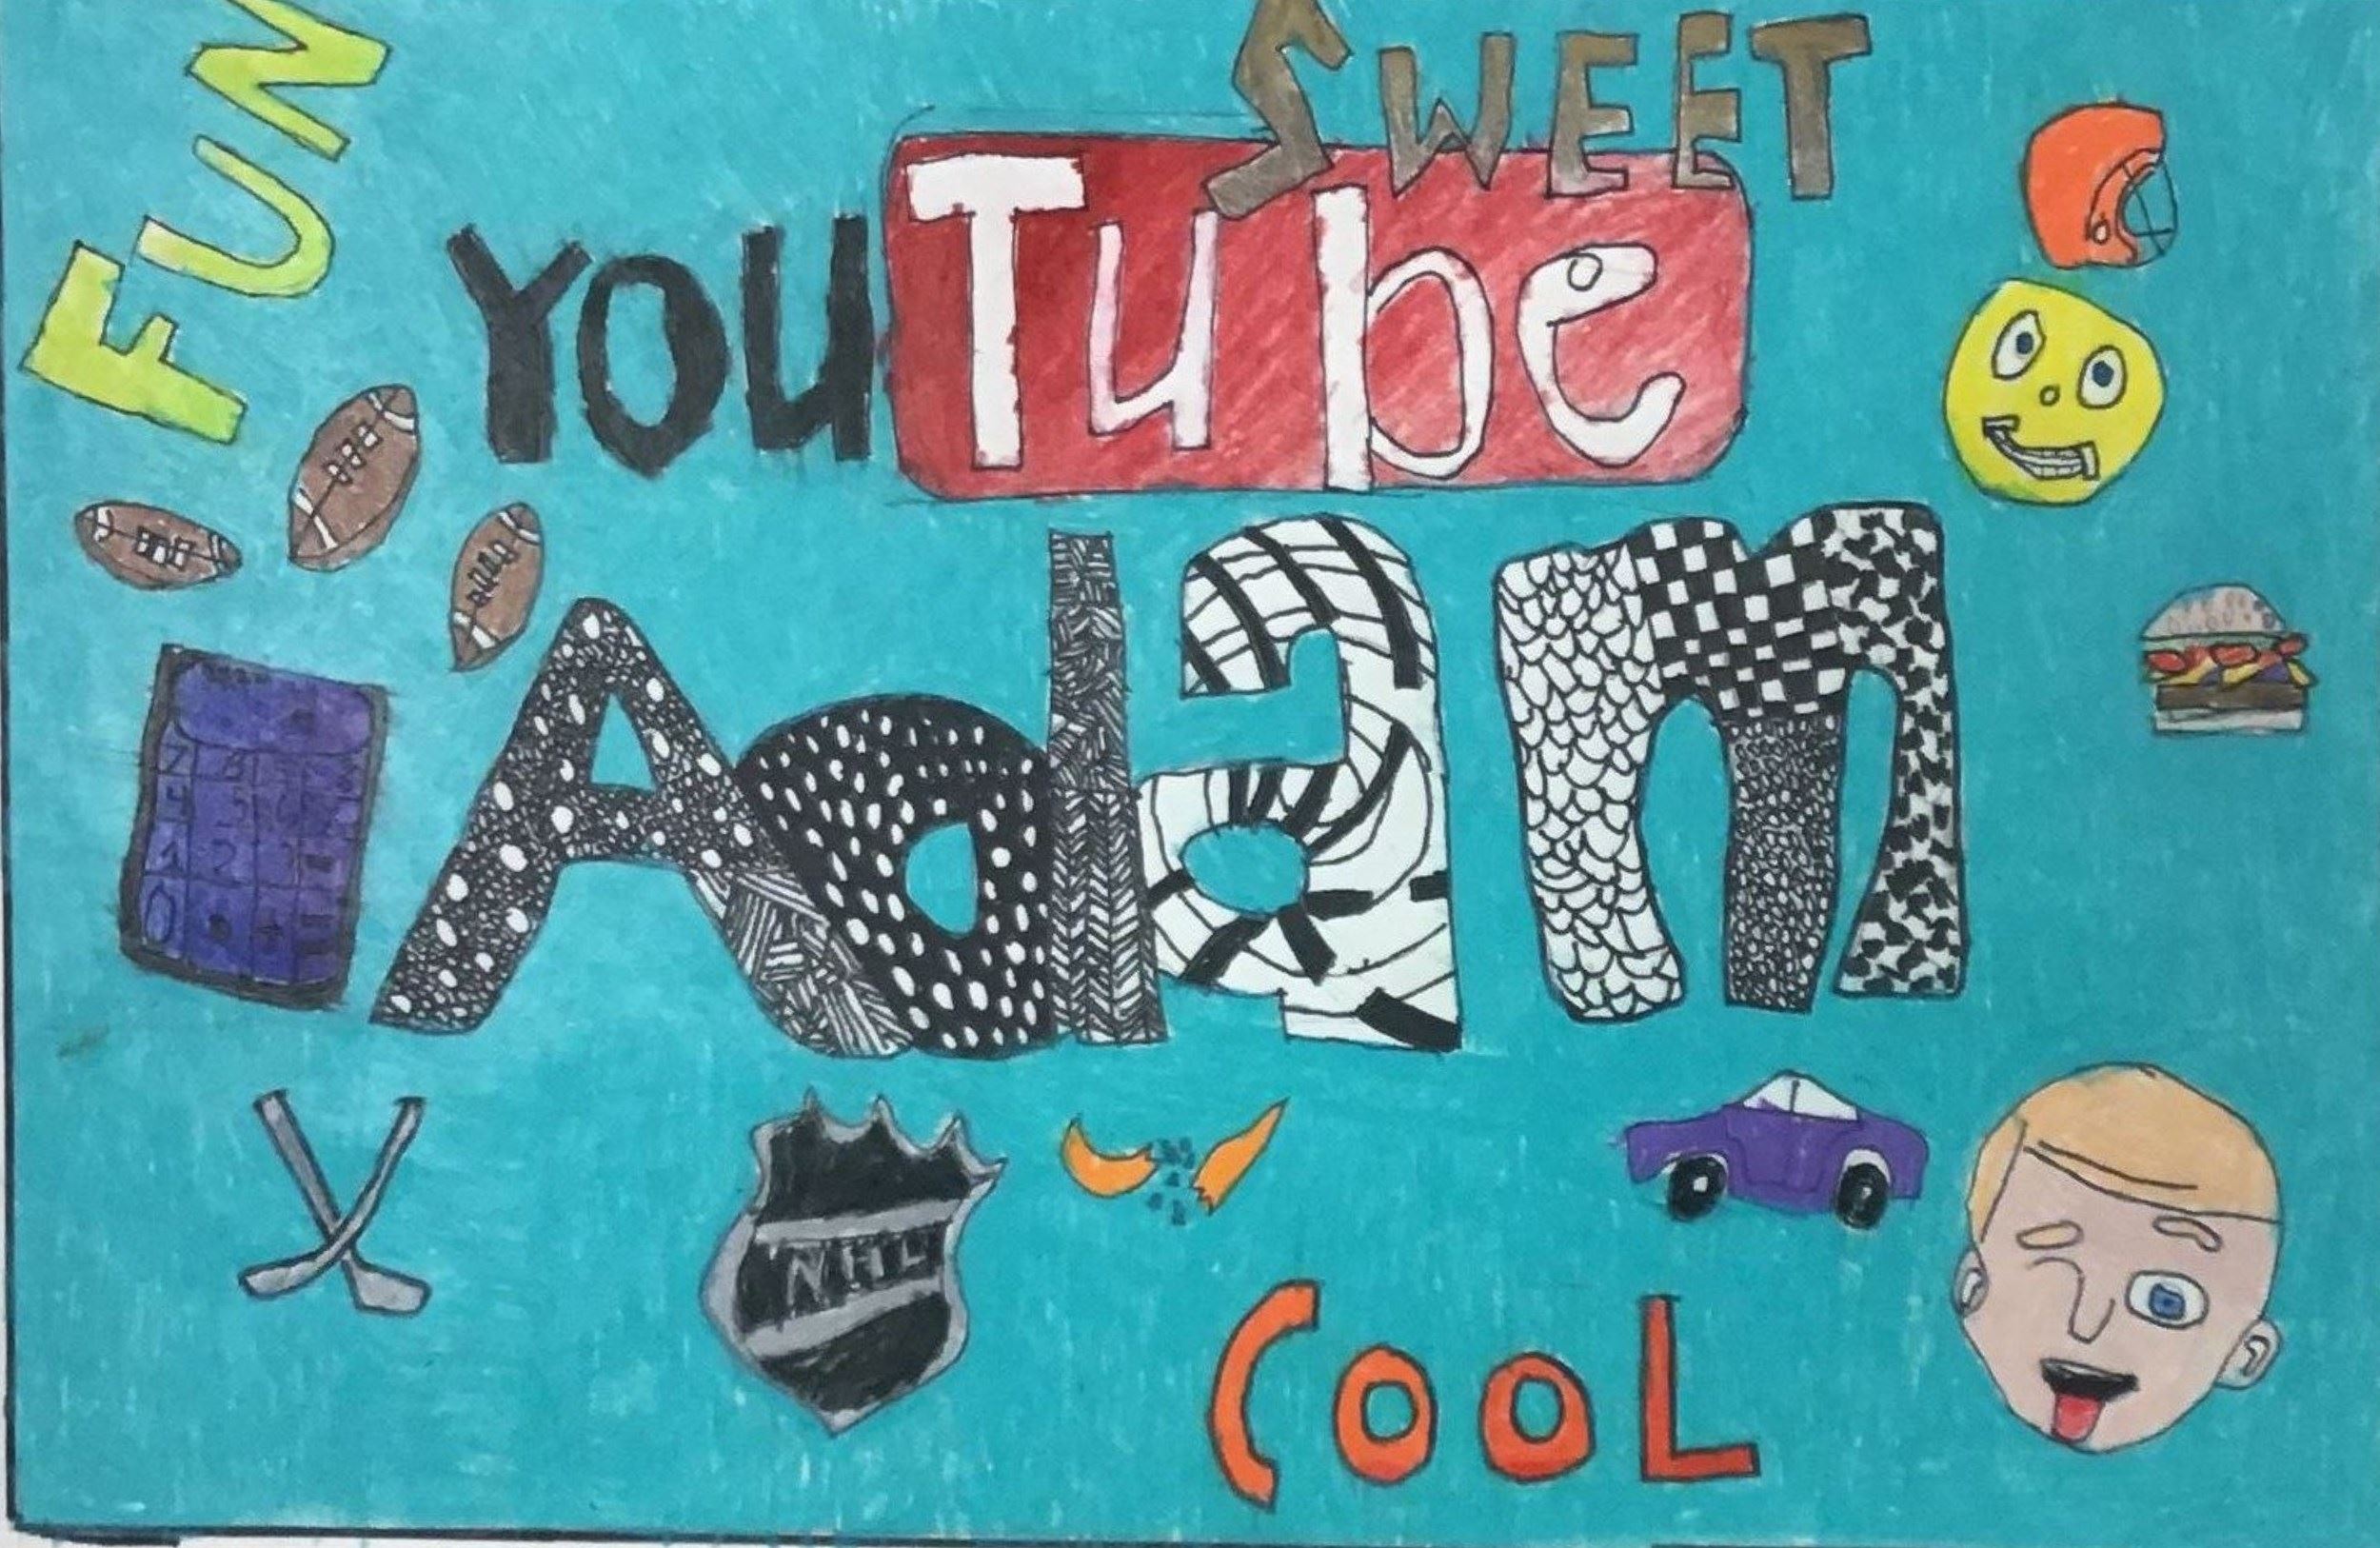 FUN
SWEET
YOU Tube
Adam
7 8
4 5 6
1 2 3
0
NHL
COOL